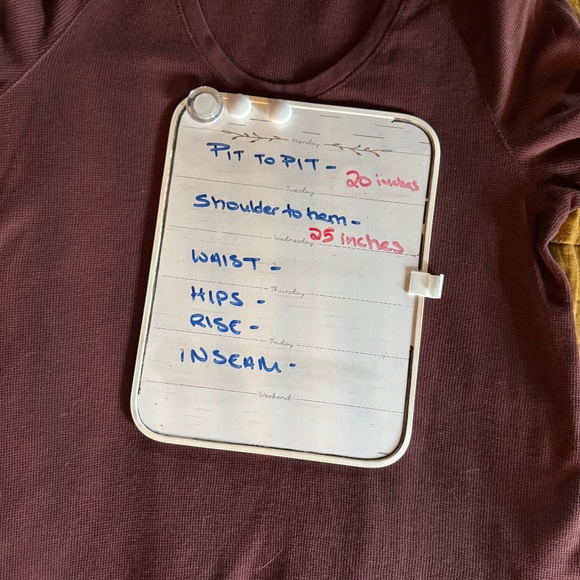 Monday
PIT TO PIT -
20 inches
Tuesday
Shoulder to hem -
Wednesday
25 inches
WAIST -
Thursday
HIPS -
RISE -
Friday
INSEAM -
Weekend